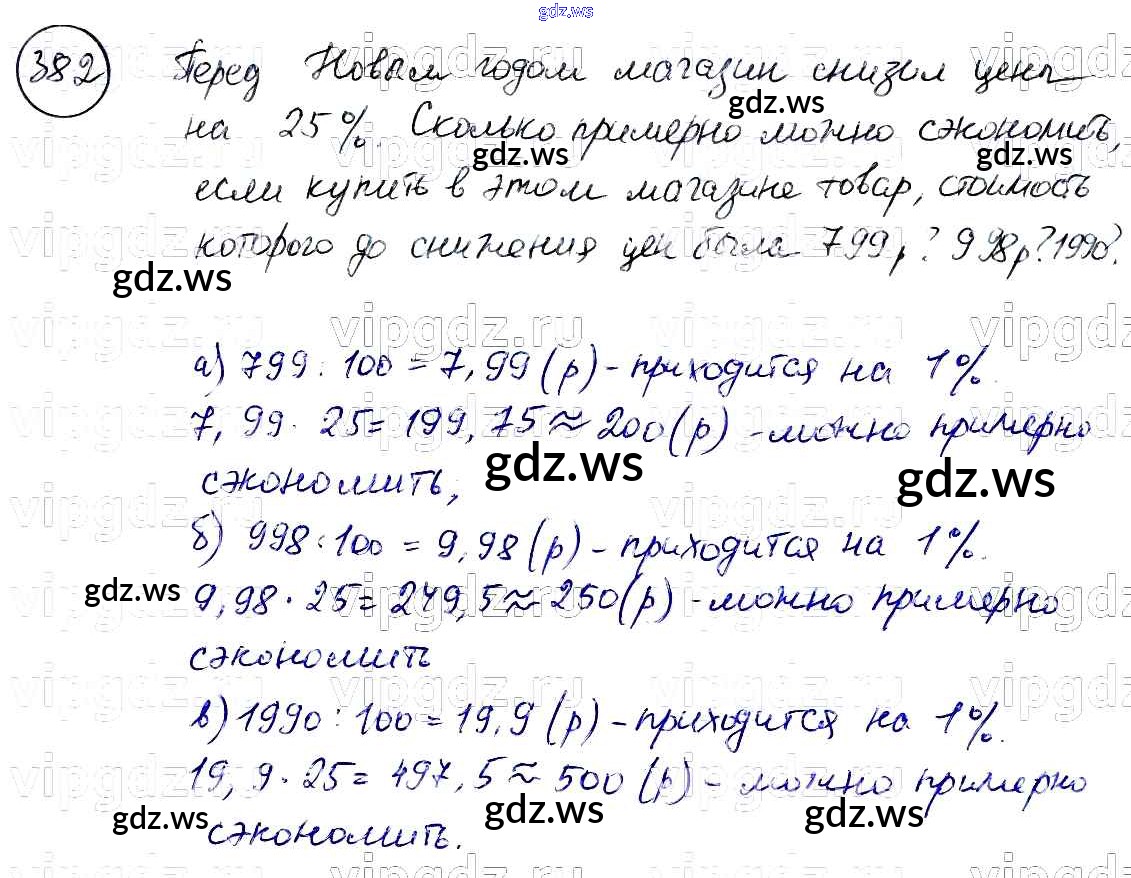 gdz.ws
382 Перед Новым годом магазин снизил цены
на 25%. Сколько примерно можно сэкономить,
если купить в этом магазине товар, стоимость
которого до снижения цен была 799 р? 998 р? 1990?
gdz.ws gdz.ws gdz.ws gdz.ws
vipgdz.ru vipgdz.ru vipgdz.ru vipgdz.ru
а) 799 : 100 = 7,99 (р) - приходится на 1%.
7,99 · 25 = 199,75 ≈ 200 (р) - можно примерно
сэкономить,
gdz.ws gdz.ws
б) 998 : 100 = 9,98 (р) - приходится на 1%.
9,98 · 25 = 249,5 ≈ 250 (р) - можно примерно
сэкономить
gdz.ws
в) 1990 : 100 = 19,9 (р) - приходится на 1%.
19,9 · 25 = 497,5 ≈ 500 (р) - можно примерно
сэкономить.
gdz.ws gdz.ws gdz.ws